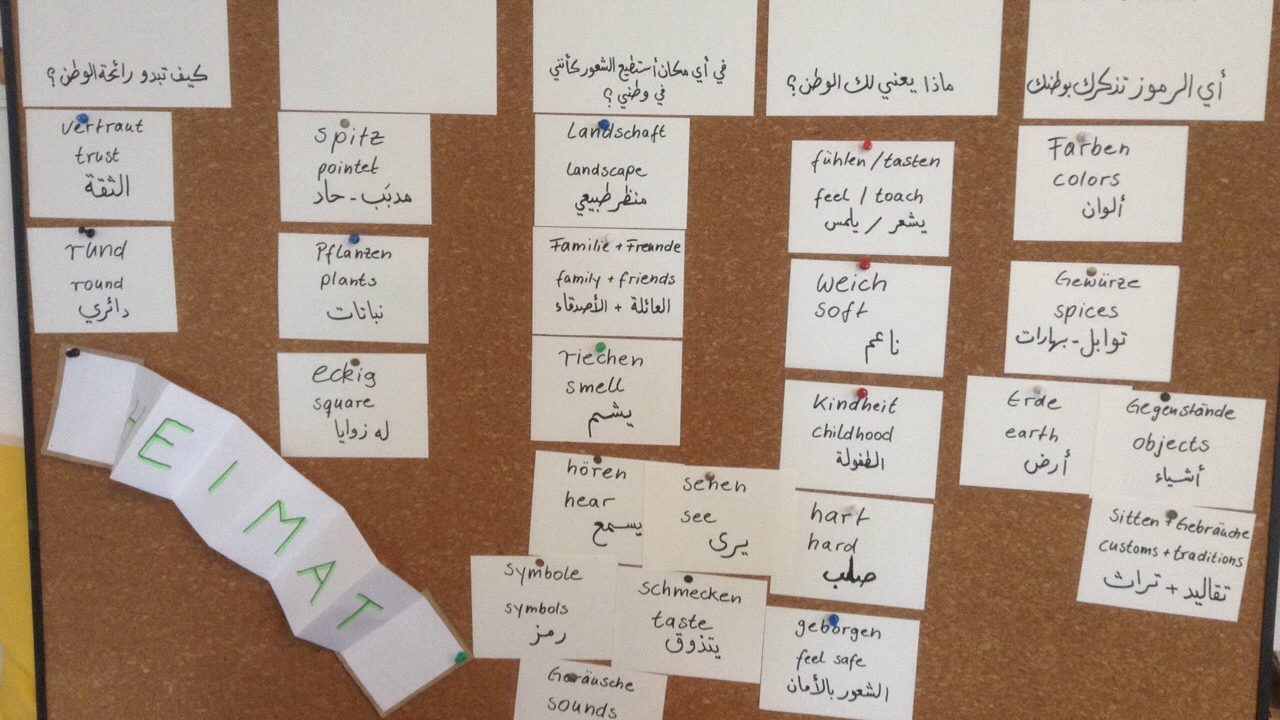 كيف تبدو رائحة الوطن؟
في أي مكان أستطيع الشعور كأنني
في وطني؟
ماذا يعني لك الوطن؟
أي الرموز تذكرك بوطنك
vertraut
trust
الثقة
rund
round
دائري
HEIMAT
spitz
pointet
مدبّب - حاد
Pflanzen
plants
نباتات
eckig
square
له زوايا
Landschaft
landscape
منظر طبيعي
Familie + Freunde
family + friends
العائلة + الأصدقاء
riechen
smell
يشم
hören
hear
يسمع
sehen
see
يرى
symbole
symbols
رمز
schmecken
taste
يتذوق
Geräusche
sounds
fühlen / tasten
feel / toach
يشعر / يلمس
weich
soft
ناعم
Kindheit
childhood
الطفولة
hart
hard
صلب
geborgen
feel safe
الشعور بالأمان
Farben
colors
ألوان
Gewürze
spices
توابل - بهارات
Erde
earth
أرض
Gegenstände
objects
أشياء
Sitten + Gebräuche
customs + traditions
تقاليد + تراث